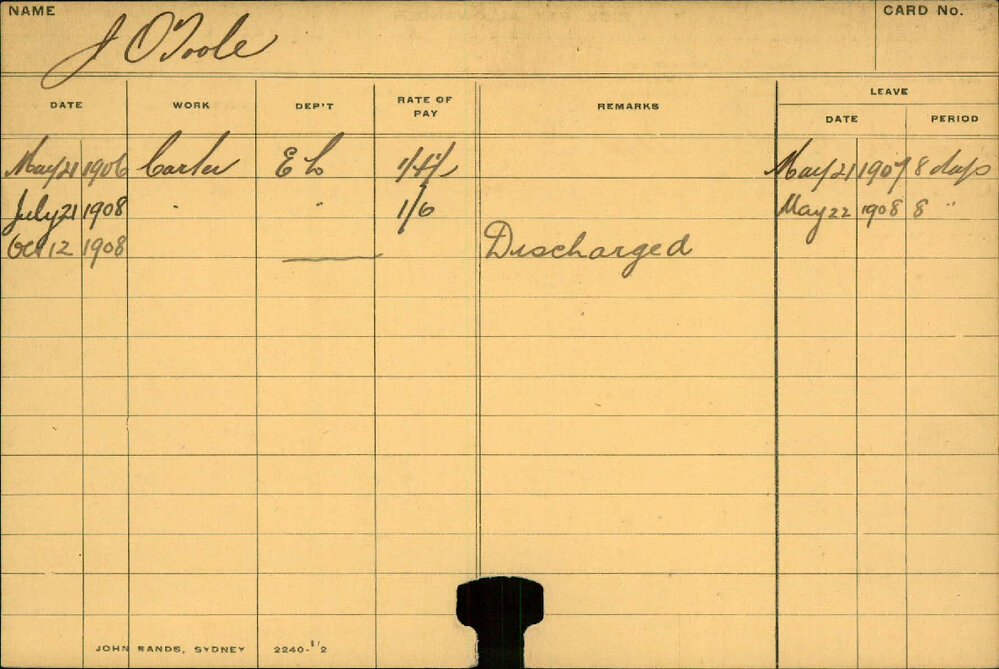 NAME
J O'Toole
CARD No.
DATE WORK DEP'T RATE OF PAY REMARKS LEAVE
DATE PERIOD
May 21 1906 Carter E L 1/4½ May 21 1907 8 days
July 21 1908 " " 1/6 May 22 1908 8 "
Oct 12 1908 Discharged
JOHN SANDS, SYDNEY 2240-1/2